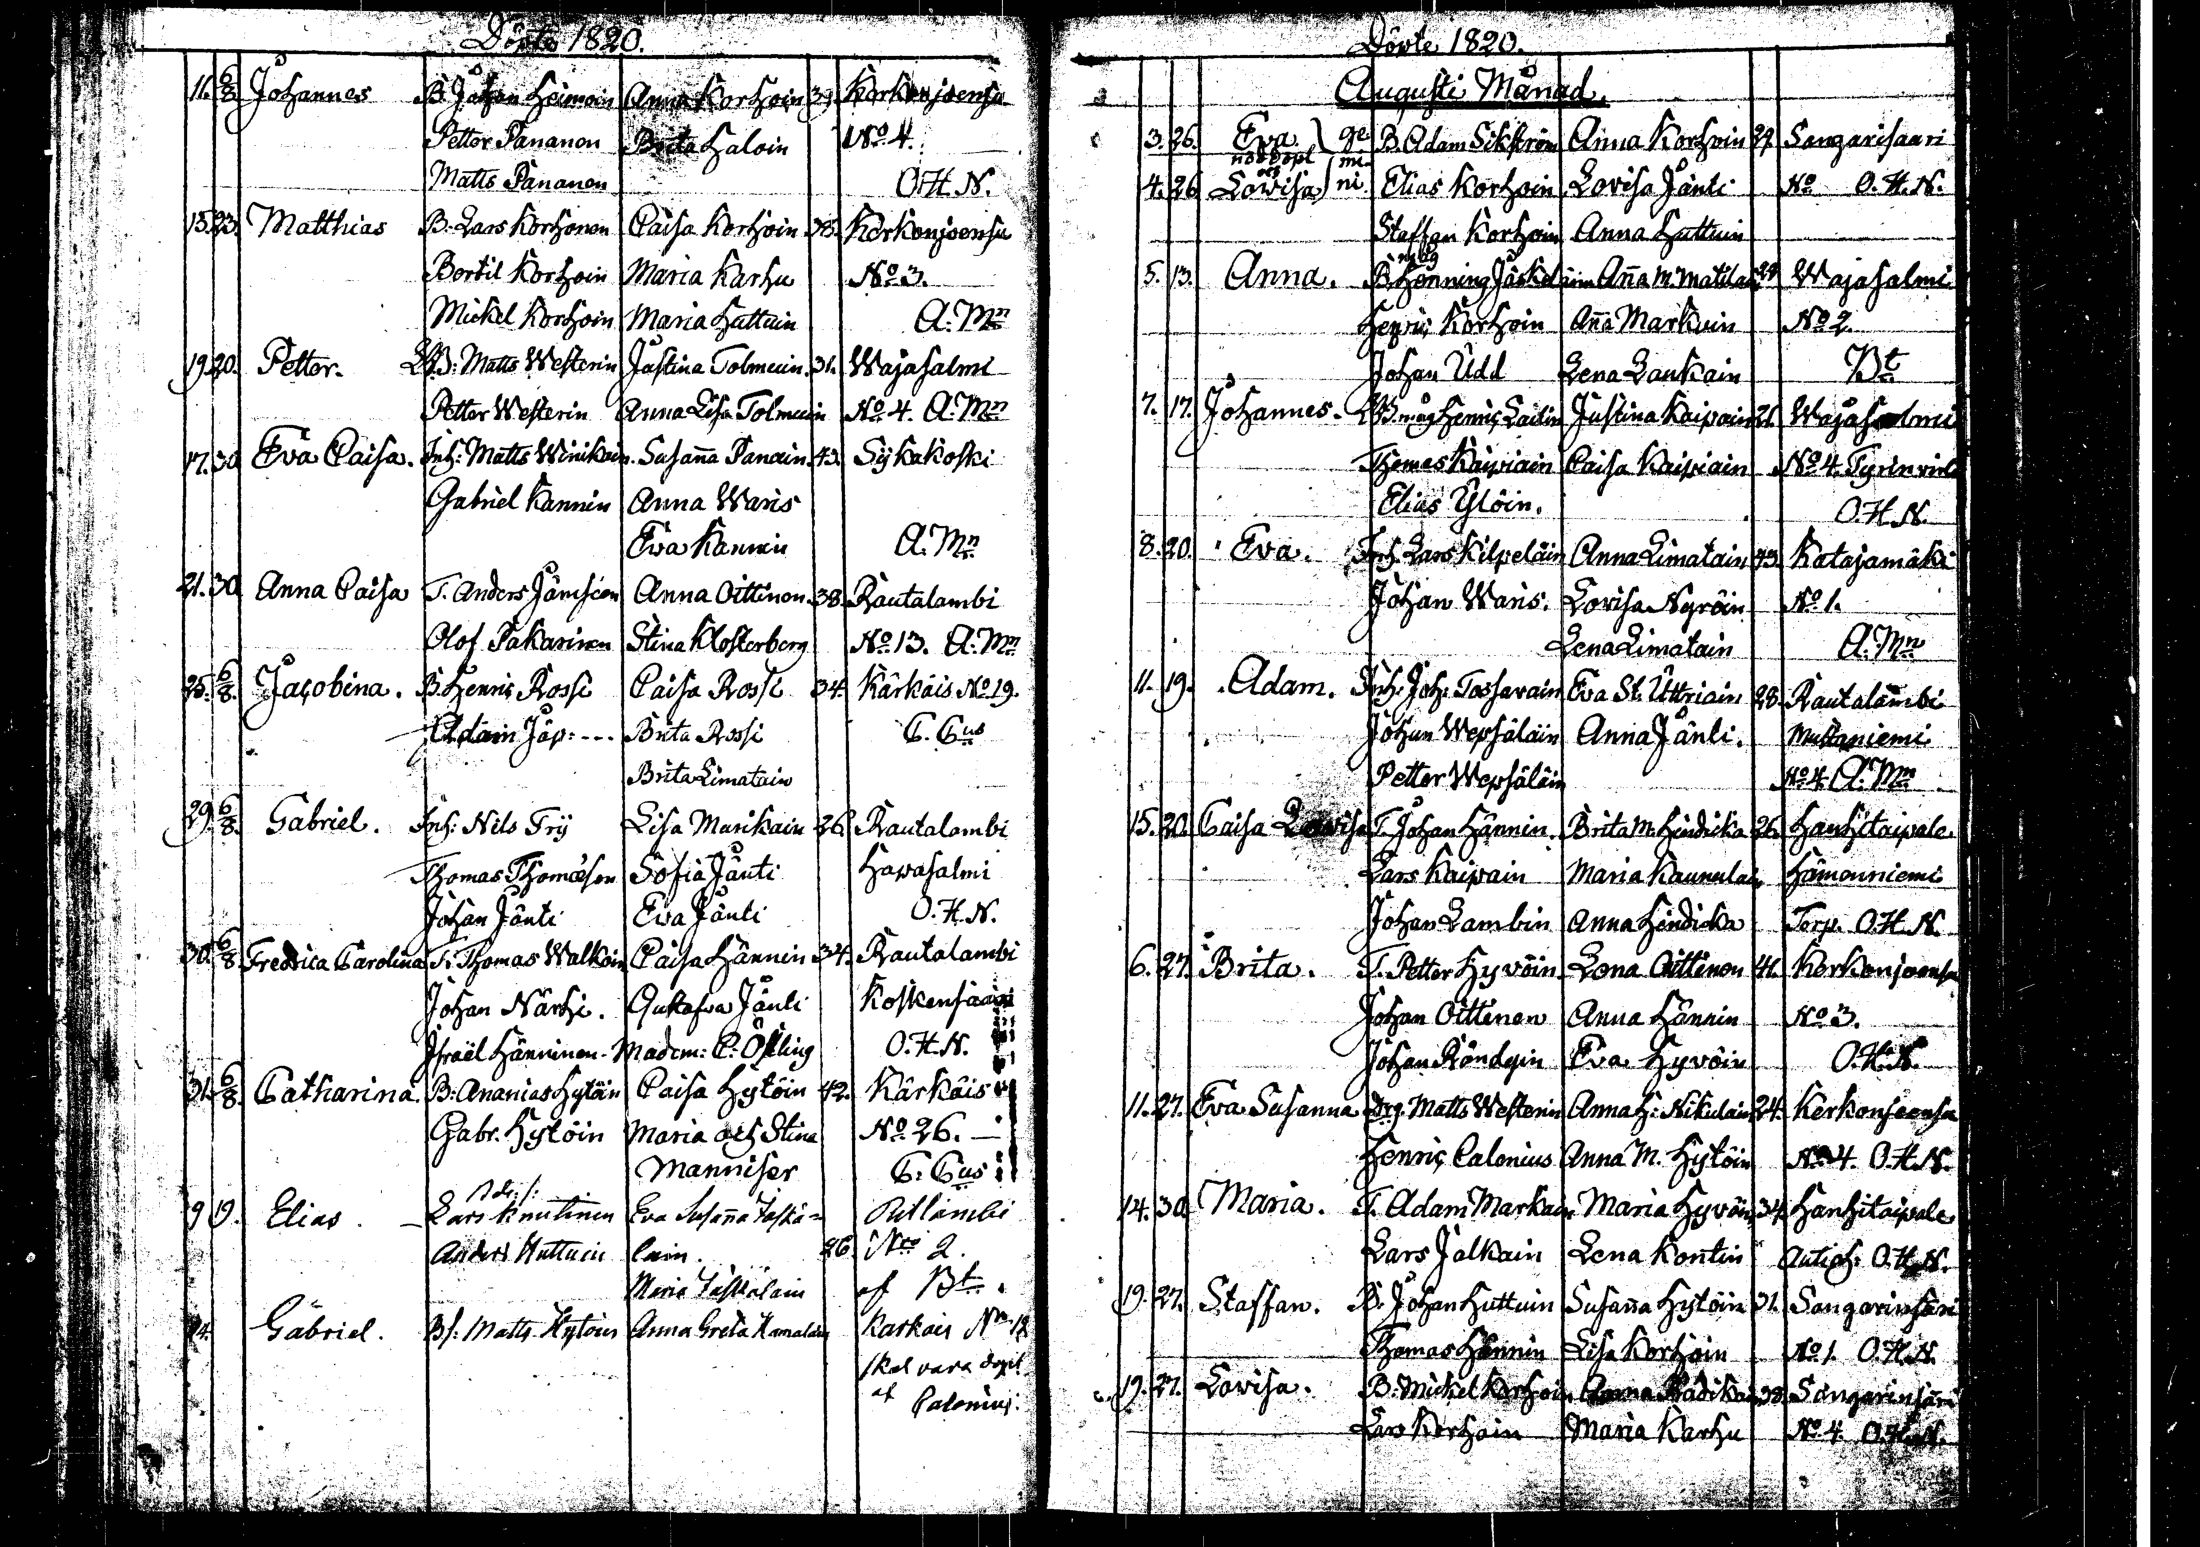 Döpte 1820.
11. 6/8 Johannes B. Johan Heimoin Anna Korhoin 39. Korkonjoensu
Petter Pananen Brita Haloin No 4.
Matts Pananen O.H.N.
15. 23. Matthias B. Lars Korhonen Caisa Korhoin Kerkonjoensu
Bertil Korhoin Maria Karhu No 3.
Mickel Korhoin Maria Huttuin A. Mn
19. 20. Petter. B: Matts Westerin Justina Tolmuin. 31. Wajasalmi
Petter Westerin Anna Lisa Tolmuin No 4. A. Mn
17. 30. Eva Caisa. Inh: Matts Winikain. Susaña Panain. 43. Sykäkoski
Gabriel Kannin Anna Waris
Eva Kannin A. Mn
21. 30. Anna Caisa T. Anders Jämseen Anna Oittinen. 38. Rautalambi
Olof Pakarinen Stina Klosterberg No 13. A. Mn
25. 6/8. Jacobina. B. Henric Rossi Caisa Rossi 34. Kärkäis No 19.
Adam Jäp: --- Brita Rossi C. Cus
Brita Limatain
29. 6/8. Gabriel. Inh: Nils Frÿ Lisa Marikain 26. Rautalambi
Thomas Thomæson Sofia Jänti Hawasalmi
Johan Jänti Eva Jänti O.H.N.
30. 6/8 Fredrica Carolina T. Thomas Walkoin Caisa Hännin 34. Rautalambi
Johan Närhi. Gustafva Jänti Koskensaari
Israël Hänninen. Madem: C. Östling O.H.N.
31. 6/8. Catharina. B: Ananias Hytöin Caisa Hytöin 42. Kärkäis
Gabr. Hytöin Maria och Stina No 26.
Manniser C. Cus
9 19. Elias. Lars Knutinen Eva Susaña Jäskä=
Anders Huttuin lain. 26 Nro 2.
Maria Jäskälain af Bt.
24. Gabriel. Bs: Matts Hytöin Anna Greta Hamalain Karkais No 18
skal vara döpt
af Calonius.
Döpte 1820.
Augusti Månad.
3. 26. Eva ge B. Adam Sikström Anna Korhoin 29. Sangarisaari
nöddöpt mi
och
4. 26 Lowisa ni. Elias Korhoin Lovisa Jänti No O.H.N.
Staffan Korhoin Anna Huttuin
5. 13. Anna. B. måg Henning Jäskeläinin Aña M. Matilain 28 Wajasalmi
Henric Korhoin Aña Markuin No 2.
Johan Udd Lena Laukain Bt
7. 17. Johannes. B. måg Henric Laitin Justina Kaipain 21. Wajasalmi
Thomas Kaipiain Caisa Kaipiain No 4. Tyrinvirta
Elias Ylöin. O.H.N.
8. 20. Eva. Inh. Lars Kilpeläin Anna Limatain 43. Katajamäki
Johan Waris. Lovisa Nyröin No 1.
Lena Limatain A. Mn
11. 19. Adam. Inh. Joh: Tossavain Eva St. Uttriain 28. Rautalambi
Johan Wepsäläin Anna Jänti. Mustaniemi
Petter Wepsäläin No 4. A. Mn
15. 20. Caisa Lowisa T. Johan Hännin. Brita M. Hindicka 26. Hanhitaipale
Lars Kaipain Maria Kaunulain Hämenniemi
Johan Lambin Anna Hindicka Torp. O.H.N.
6. 27. Brita. T. Petter Hyvöin Lena Oittinen 41. Kerkonjoensu
Johan Oittinen Anna Hännin No 3.
Johan Röndyin Eva Hyvöin O.H.N.
11. 27. Eva Susanna Drg. Matts Westerin Anna H: Nikulain 24. Kerkonjoensu
Henric Calonius Anna M. Hytöin No 4. O.H.N.
14. 30. Maria. T. Adam Markain Maria Hyvöin 34. Hanhitaipale
Lars Jalkain Lena Kontin O.H.N.
19. 27. Staffan. B. Johan Huttuin Susaña Hytöin 31. Sangarinsari
Thomas Hännin Lisa Korhoin No 1. O.H.N.
19. 27. Lovisa. B: Mickel Korhoin Anna Radikain 38. Sangarinsari
Lars Korhoin Maria Karhu No 4. O.H.N.